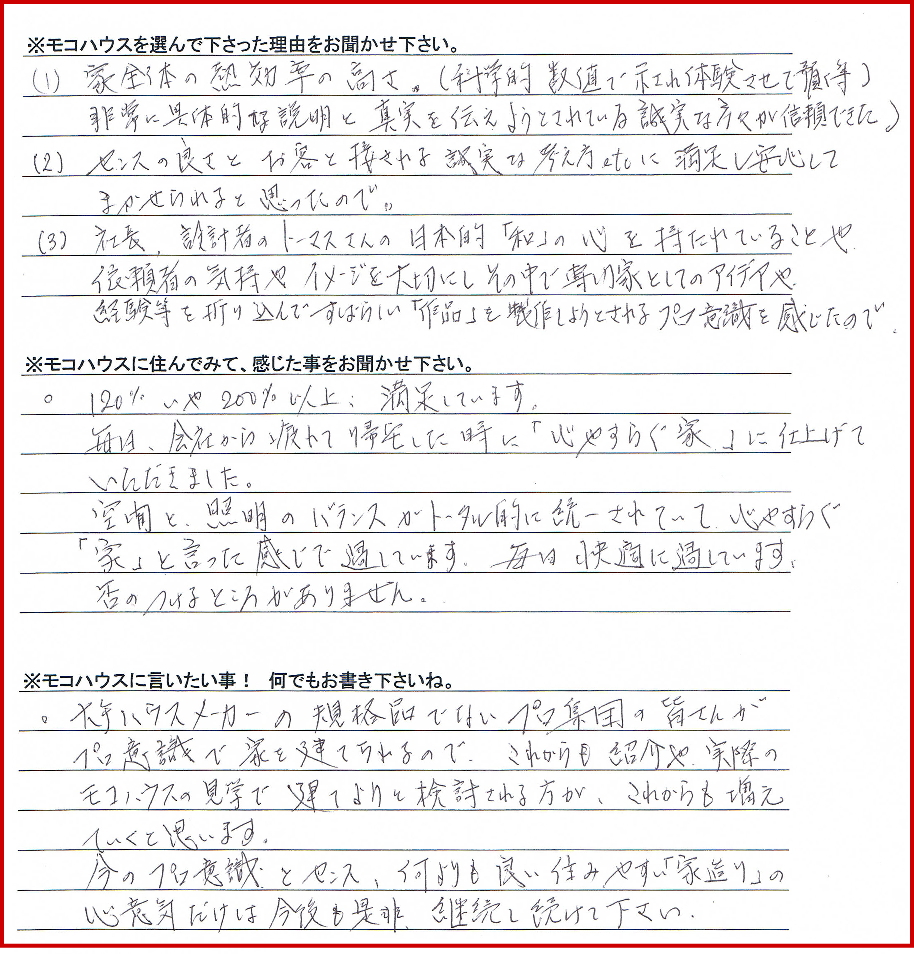 ※モコハウスを選んで下さった理由をお聞かせ下さい。
(1) 家全体の熱効率の高さ。(科学的 数値で示され体験させて頂く等)
非常に具体的な説明と 真実を伝えようとされている誠実な方々が信頼できた)
(2) センスの良さと お客と接される 誠実な 考え方 etcに 満足し安心して
まかせられると思ったので。
(3) 社長、設計者のトーマスさんの 日本的「和」の 心 を 持たれていることや
依頼者の気持や イメージを大切にし その中で専門家としてのアイデアや
経験等を折り込んですばらしい「作品」を製作しようとされるプロ意識を感じたので
※モコハウスに住んでみて、感じた事をお聞かせ下さい。
○ 120% いや 200%以上、満足しています。
毎日、会社から疲れて帰宅した時に「心やすらぐ家」に仕上げて
いただきました。
空間と、照明の バランスがトータル的に統一されていて 心やすらぐ
「家」と言った感じで過しています。毎日快適に過しています。
否のつけるところがありません。
※モコハウスに言いたい事！ 何でもお書き下さいね。
○ 大手ハウスメーカーの規格品でない プロ集団の皆さんが
プロ意識で 家を建てられるので、これからも 紹介や 実際の
モコハウスの見学で 建てようと検討される方が、これからも増え
ていくと思います。
今のプロ意識とセンス、何よりも良い住みやすい「家造り」の
心意気だけは今後も是非、継続し続けて下さい。